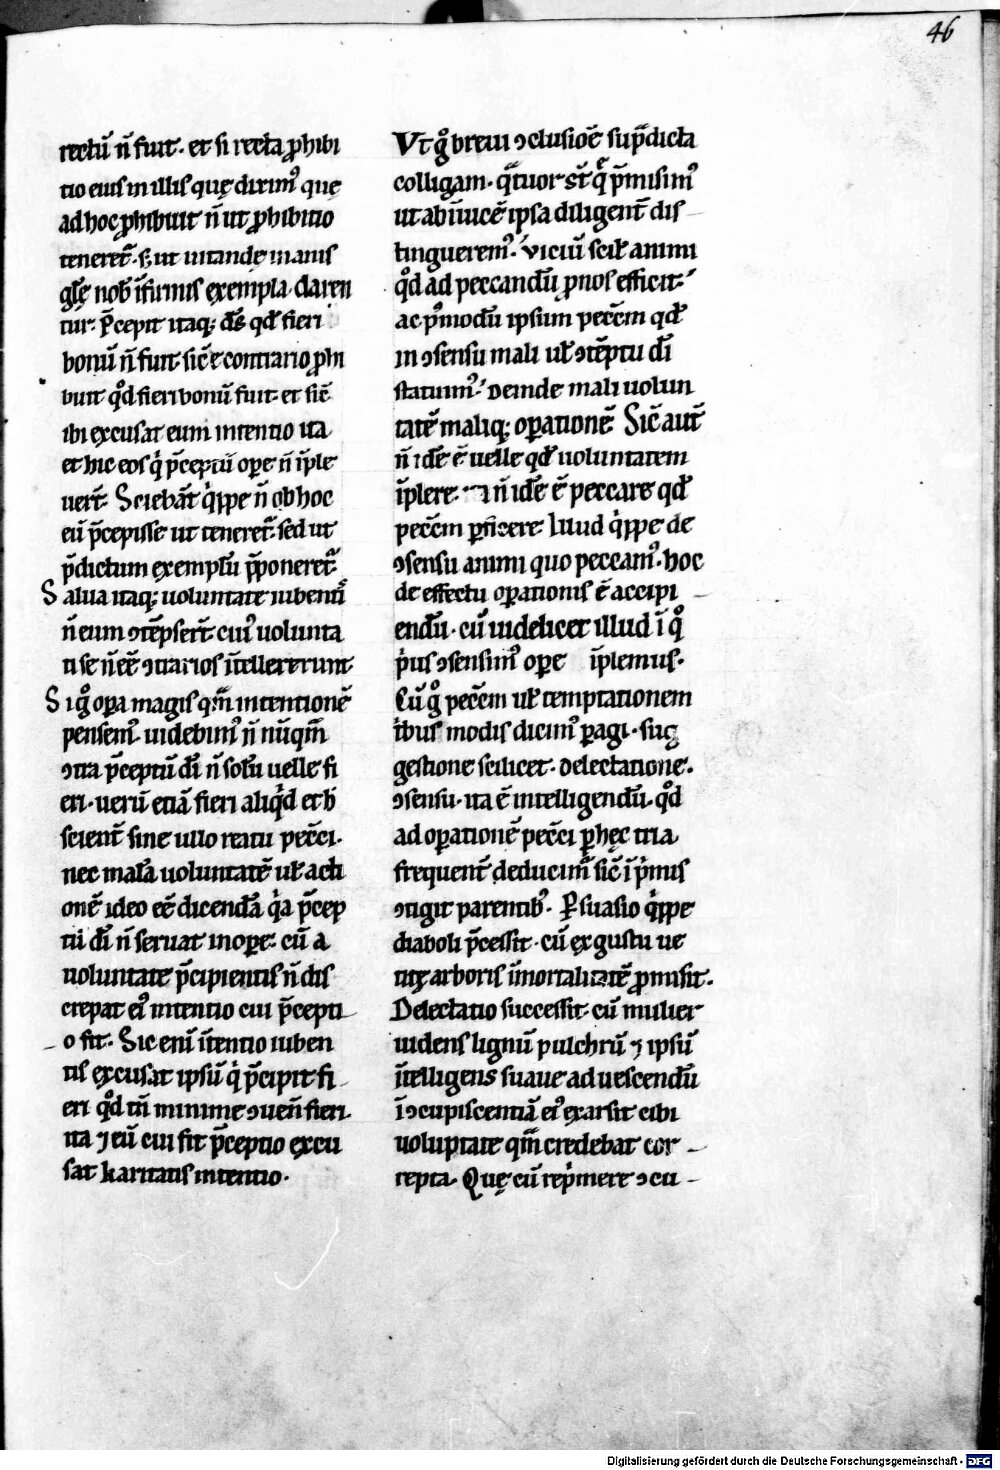 46
rectū n̄ fuit. et si recta ꝓhibi
tio eius in illis quę diximꝰ quę
ad hoc ꝓhibuit n̄ ut ꝓhibitio
teneret᷑. sꝫ ut uitandę inanis
gl̄ę nob̄ ĩfirmis exempla daren
tur. P̄cepit itaqꝫ d̄s qd̄ fieri
bonū n̄ fuit sic̄ e contrario ꝓhi
buit qͦd fieri bonū fuit. et sic̄
ibi excusat eum intentio ita
et hic eos qͥ p̄ceptū oꝑe n̄ ĩple
uert̄. Sciebāt qͥppe n̄ ob hoc
eū p̄cepisse ut teneret᷑. sed ut
p̄dictum exemplū p̄poneret᷑.
Salua itaqꝫ uoluntate iubentis
n̄ eum ↄtēpsert̄ cuiꝰ uolunta
ti se n̄ ēe ↄtrarios ĩtellexerunt.
Si gͦ oꝑa magis qm̄ intentionē
pensemꝰ. uidebimꝰ n̄ nūqm̄
ↄtra p̄ceptū dī n̄ solū uelle fi
eri. uerū etiā fieri aliqͥd et h̄
scient̄ sine ullo reatu pecc̄i.
nec malā uoluntatē uł acti
onē ideo eē dicendā qͥa p̄cep
tū dī n̄ seruat in oꝑe. cū a
uoluntate p̄cipientis n̄ dis
crepat eiꝰ intentio cui p̄cepti
o fit. Sic enī ĩtentio iuben
tis excusat ipsū qͥ p̄cipit fi
eri qͦd tn̄ minime ↄuen̄ fieri.
ita ⁊ eū cui fit p̄ceptio excu
sat karitatis intentio.
Vt gͦ breui ↄclusiōe sup̄dicta
colligam. qͣtuor st̄ q̄ p̄misimꝰ
ut ab ĩuicē ipsa diligent̄ dis
tingueremꝰ. viciū scił animi
qͦd ad peccandū ꝓnos efficit.
ac pͦmodū ipsum pecc̄m qd̄
in ↄsensu mali uł ↄtēptu dī
statuimꝰ. Deinde mali uolun
tatē maliqꝫ oꝑationē. Sic̄ aut̄
n̄ idē ē uelle qd̄ uoluntatem
ĩplere. n̄ idē ē peccare qd̄
pecc̄m ꝑficere. Illud qͥppe de
ↄsensu animi quo peccamꝰ. hoc
de effectu oꝑationis ē accipi
endū. cū uidelicet illud ĩ qͦ
pͥus ↄsensimꝰ oꝑe ĩplemus.
Cū gͦ pecc̄m uł temptationem
tͥbus modis dicimꝰ ꝑagi. sug
gestione scilicet. delectatione.
ↄsensu. ita ē intelligendū. qͦd
ad oꝑationē pecc̄i ꝑ hęc tria
frequent̄ deducimͣ sic̄ ĩ pͥmis
ↄtigit parentibꝰ. Ꝑsuasio qͥppe
diaboli p̄cessit. cū ex gustu ue
titę arboris ĩmortalitatē ꝓmisit.
Delectatio successit. cū mulier
uidens lignū pulchrū ⁊ ipsū
ĩtelligens suaue ad uescendū
ĩ ↄcupiscentiā eiꝰ exarsit cibi
uoluptate qm̄ credebat cor
repta. Quę cū repͥmere ↄcu
Digitalisierung gefördert durch die Deutsche Forschungsgemeinschaft - DFG